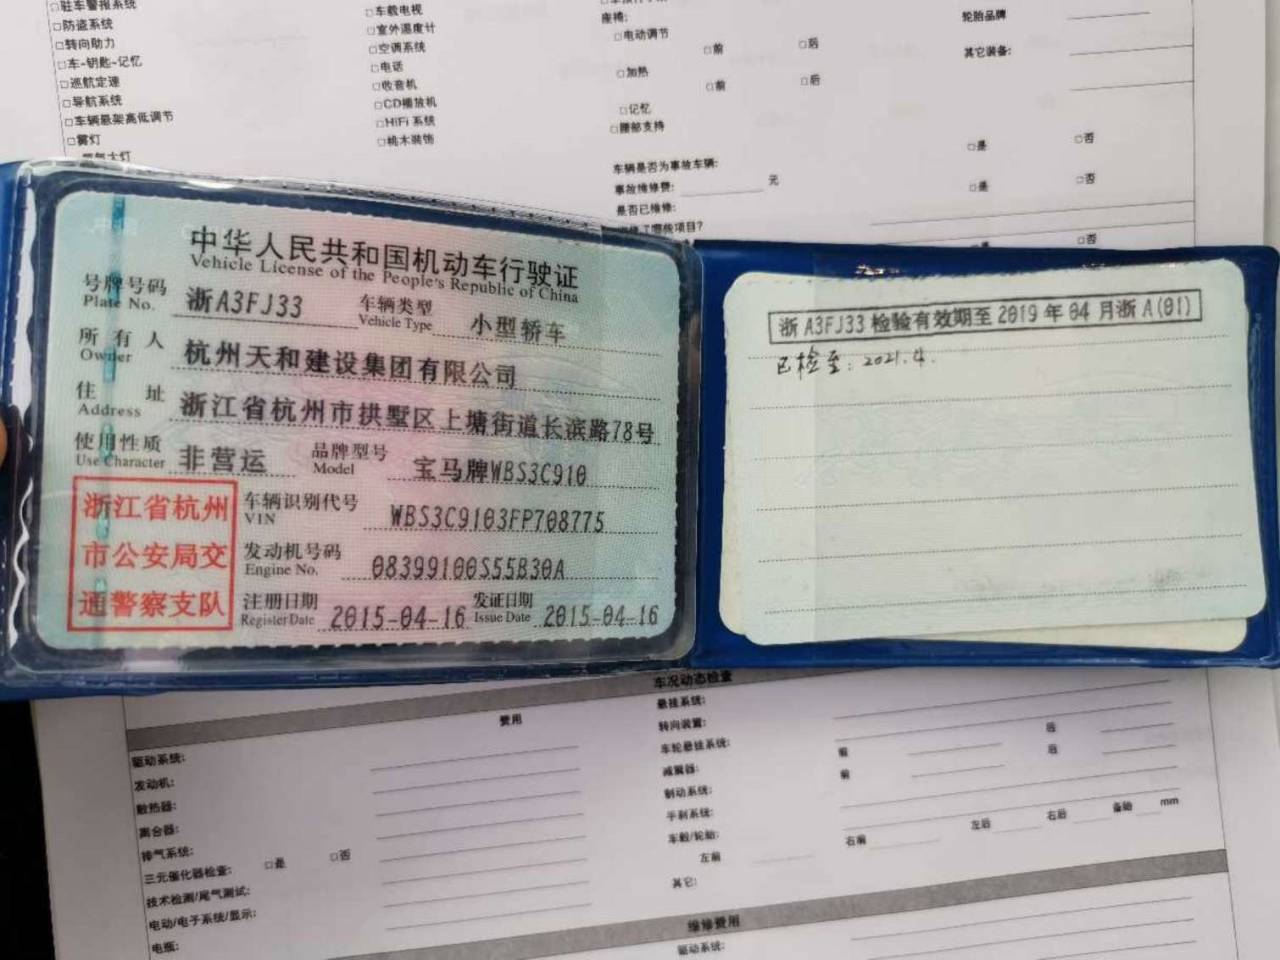 □驻车警报系统
□防盗系统
□转向助力
□车-钥匙-记忆
□巡航定速
□导航系统
□车辆悬架高低调节
□雾灯
□车载电视
□室外温度计
□空调系统
□电话
□收音机
□CD播放机
□HiFi 系统
□桃木装饰
座椅:
□电动调节
□前 □后
□加热
□前 □后
□记忆
□腰部支持
轮胎品牌
其它装备:
车辆是否为事故车辆: □是 □否
事故维修费: 元 □是 □否
是否已维修:
□否
中华人民共和国机动车行驶证
Vehicle License of the People's Republic of China
号牌号码 浙A3FJ33 车辆类型 小型轿车
Plate No. Vehicle Type
所有人 杭州天和建设集团有限公司
Owner
住址 浙江省杭州市拱墅区上塘街道长滨路78号
Address
使用性质 非营运 品牌型号 宝马牌WBS3C910
Use Character Model
浙江省杭州
市公安局交
通警察支队
车辆识别代号 WBS3C9103FP708775
VIN
发动机号码 08399100S55B30A
Engine No.
注册日期 2015-04-16 发证日期 2015-04-16
Register Date Issue Date
浙A3FJ33检验有效期至2019年04月浙A(01)
已检至: 2021.4.
费用
驱动系统:
发动机:
散热器:
离合器:
排气系统:
三元催化器检查: □是 □否
技术检测/尾气测试:
电动/电子系统/显示:
电瓶:
车况动态检查
悬挂系统:
转向装置:
车轮悬挂系统: 前 后
减震器: 前 后
制动系统:
手刹系统:
车毂/轮胎: 右前 左后 右后 备胎 mm
左前
其它:
维修费用
驱动系统: